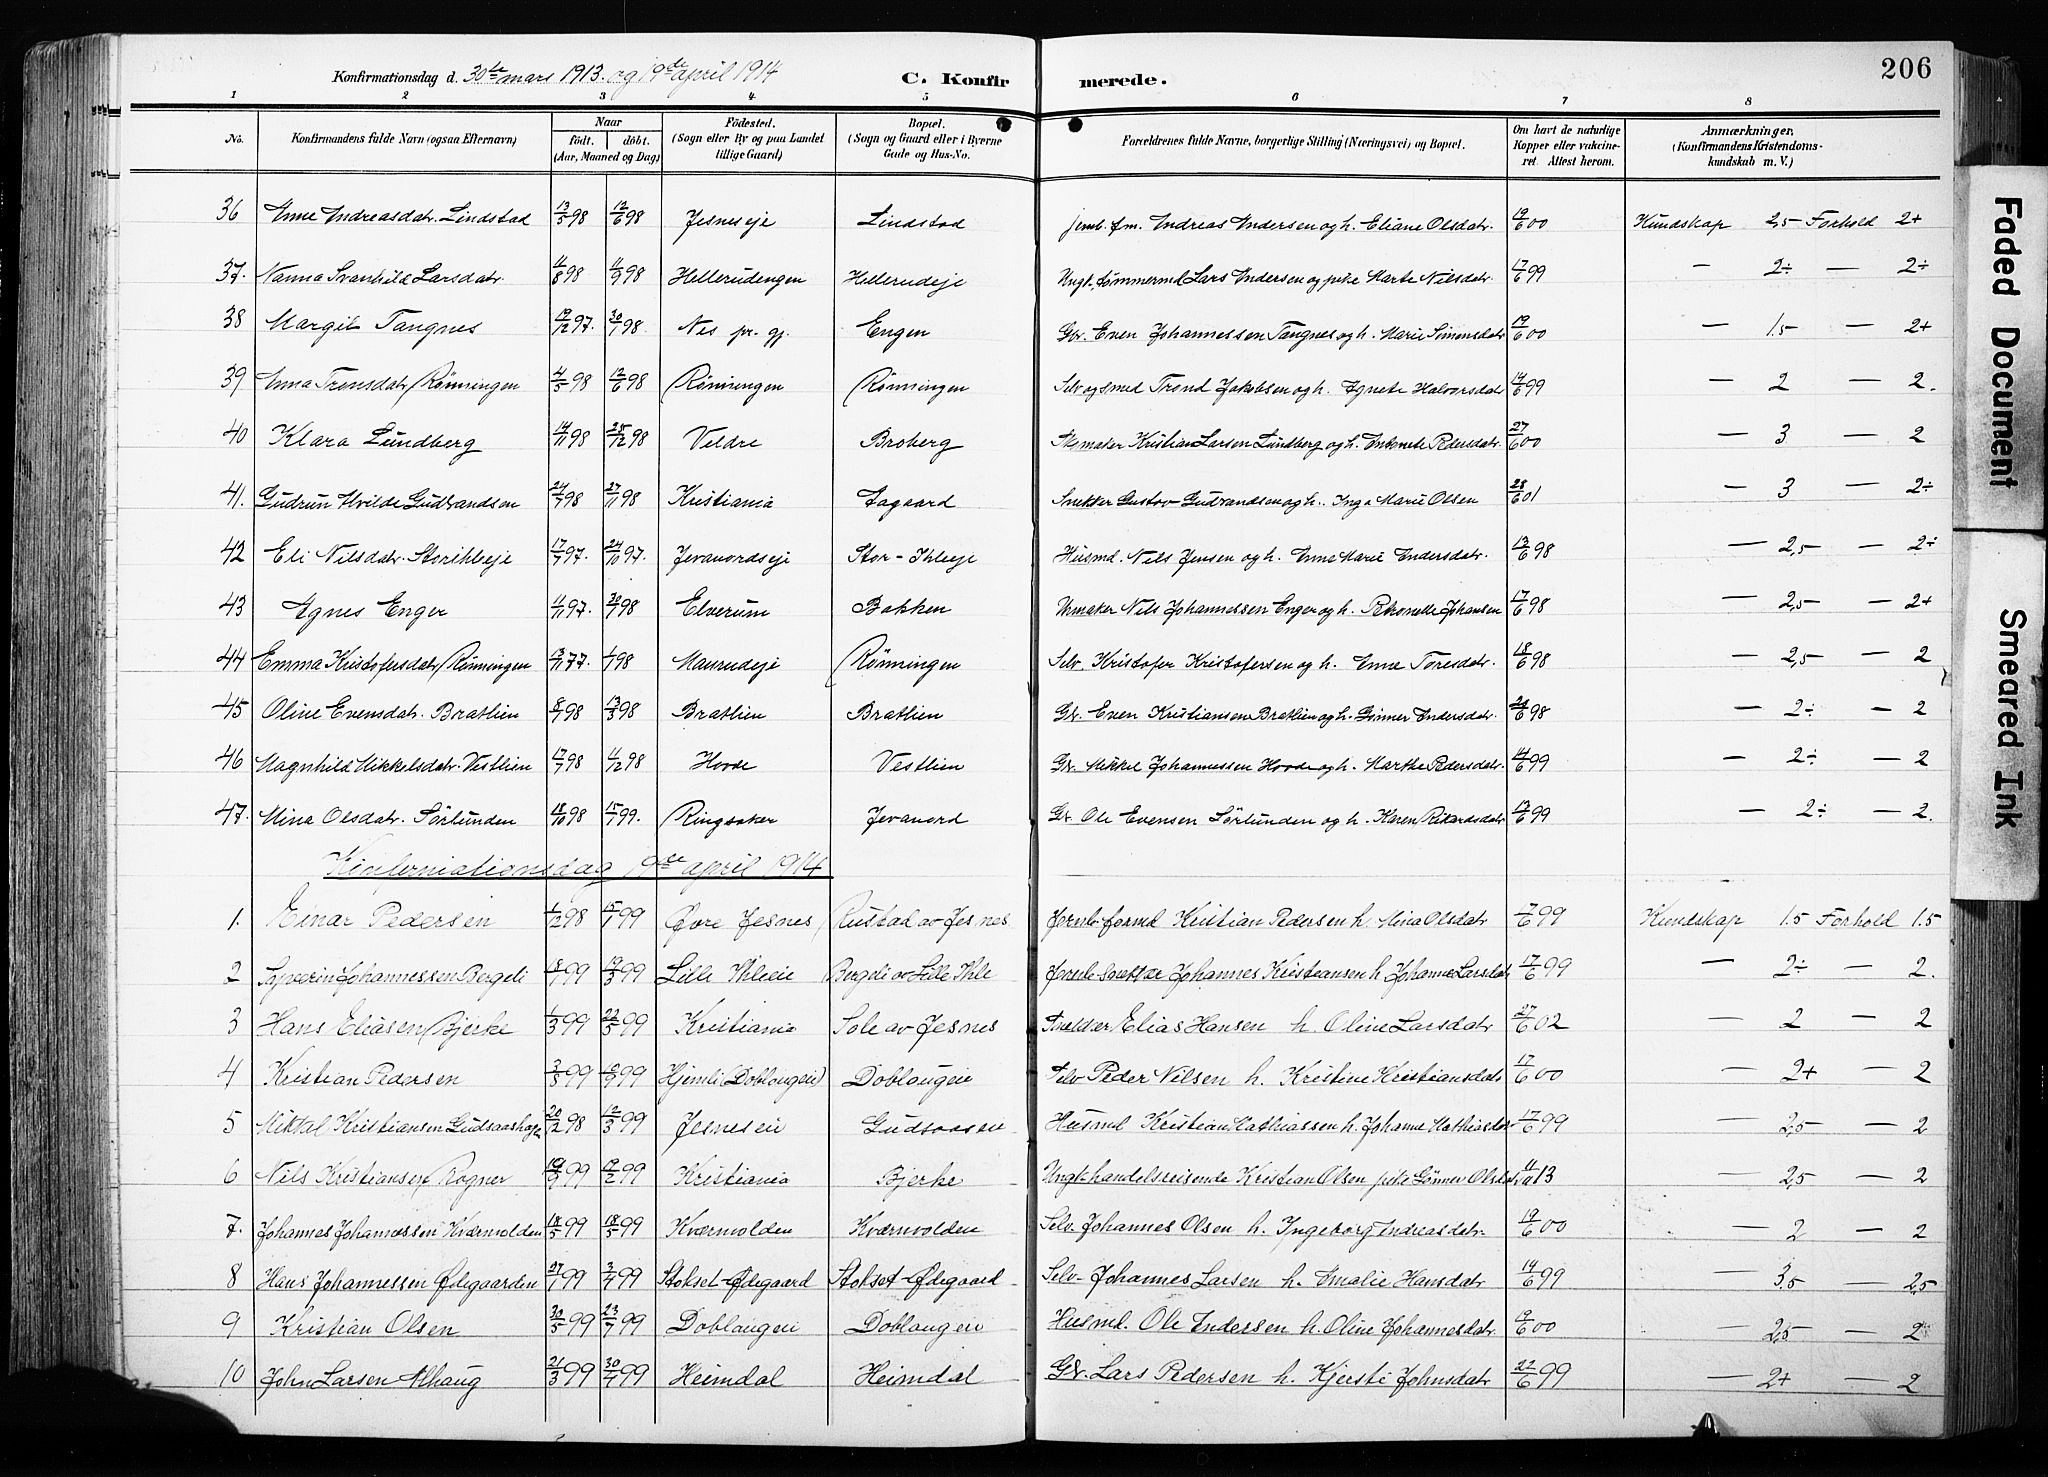 206
Konfirmationsdag d. 30te mars 1913. og 19de april 1914
C. Konfirmerede.
1 2 3 4 5 6 7 8
No. Konfirmandens fulde Navn (ogsaa Efternavn) Naar født. døbt. (Aar, Maaned og Dag) Fødested. (Sogn eller By og paa Landet tillige Gaard) Bopæl. (Sogn og Gaard eller i Byerne Gade og Hus-No. Forældrenes fulde Navne, borgerlige Stilling (Næringsvei) og Bopæl. Om havt de naturlige Kopper eller vakcineret. Attest herom. Anmærkninger, (Konfirmandens Kristendomskundskab m. V.)
36 Anne Andreasdatr. Lindstad 13/5 98 12/6 98 Jesneseje Lindstad jernb. fm. Andreas Andersen og h. Eliane Olsdatr. 19/6 00 Kundskap 2,5 Forhold 2+
37. Nanna Svanhild Larsdatr 11/8 98 11/9 98 Hellerudengen Hellerudeje Ungk. tømmermd Lars Andersen og pike Marte Nilsdatr. 17/6 99 — 2÷ — 2÷
38 Margit Tangnes 19/12 97. 30/1 98. Nes pr. gj. Engen Gbr. Even Johannessen Tangnes og h. Marie Simensdatr 19/6 00 — 1.5 — 2+
39 Anna Tronsdatr Rønningen 4/5 98 12/6 98 Rønningen Rønningen Selv og smed Trond Jakobsen og h. Agnete Halvorsdatr 14/6 99 — 2 — 2.
40 Klara Lundberg 14/11 98 25/12 98 Veldre Broberg Skomaker Kristian Larsen Lundberg og h. Antonete Pedersdatr. 27/6 00 — 3 — 2
41. Gudrun Alvilde Gudbrandsen 24/7 98 27/11 98 Kristiania Aagaard Snekker Gustav Gudbrandsen og h. Inga Marie Olsen 28/6 01 — 3 — 2÷
42 Eli Nilsdatr. Storihleje 17/7 97. 24/10 97. Jevanordseje Stor-Ihleje Husmd. Nils Jensen og h. Anne Marie Andersdatr. 13/6 98 — 2,5 — 2÷
43 Agnes Enger 11/11 97. 30/1 98 Elverum Bakken Urmaker Nils Johannessen Enger og h. Petronelle Johansen 17/6 98 — 2,5 — 2+
44 Emma Kristofersdatr Rønningen 13/11 77. 1/1 98 Maurudeje Rønningen Selv. Kristofer Kristofersen og h. Anne Toresdatr. 18/6 98 — 2,5 — 2
45 Oline Evensdatr. Bratlien 8/1 98 13/3 98 Bratlien Bratlien Gbr. Even Kristiansen Bratlien og h. Gunner Andersdatr. 24/6 98 — 2÷ — 2
46 Magnhild Mikkelsdatr. Vestlien 17/7 98 11/12 98 Hovde Vestlien Gbr. Mikkel Johannessen Hovde og h. Marthe Pedersdatr. 14/6 99 — 2÷ — 2
47. Mina Olsdatr. Sørlunden 18/10 98 15/1 99. Ringsaker Jevanord Gbr. Ole Evensen Sørlunden og h. Karen Rikardsdatr 13/6 99 — 2÷ — 2.
Konfirmationsdag 19de april 1914
1. Einar Pedersen 1/12 98 15/1 99 Øvre Jesnes Rustad av Jesnes Jernb. formd Kristian Pedersen h. Mina Olsdatr 17/6 99 Kundskap 1.5 Forhold 1.5
2 Syverin Johannessen Bergeli 18/1 99 19/3 99 Lille Ihleie Bergeli av Lille Ihle Johannes Kristiansen h Johanne Larsdatr 17/6 99 — 2÷ — 2.
3 Hans Eliasen Bjerke 1/3 99 22/5 99 Kristiania Sole av Jesnes Elias Hansen h. Oline Larsdatr 27/6 02 — 2 — 2
4 Kristian Pedersen 3/8 99 10/9 99 Hjemli (Doblougeie) Doblougeie Selv Peder Nilsen h. Kristine Kristiansdatr 17/6 00 — 2+ — 2
5 Miktal Kristiansen Gudsaashagen 20/12 98 12/3 99 Jesneseie Gudsaasen Husmd Kristian Mathiassen h. Johanne Mathiasdatr 17/6 99 — 2,5 — 2
6 Nils Kristiansen Rogner 99 99 Kristiania Bjerke Ungk. handelsreisende Kristian Olsen pike Gunner Olsdatr 13 — 2,5 — 2
7. Johannes Johannessen Kværnvolden 18/5 99 18/5 99 Kværnvolden Kværnvolden Selv. Johannes Olsen h. Ingeborg Andreasdatr. 19/6 00 — 2 — 2
8 Hans Johannessen Ødegaarden 27/1 99 3/4 99 Stokset-Ødegaard Stokset-Ødegaard Selv. Johannes Larsen h. Amalie Hansdatr 14/6 99 — 3,5 — 2,5
9 Kristian Olsen 30/5 99 23/7 99 Doblougeie Doblougeie Husmd. Ole Andersen h. Oline Johannesdatr. 19/6 00 — 2,5 — 2
10 John Larsen Alhaug 21/3 99 30/4 99 Heimdal Heimdal Gbr. Lars Pedersen h. Kjersti Johnsdatr 22/6 99 — 2+ — 2
Faded Document
Smeared Ink